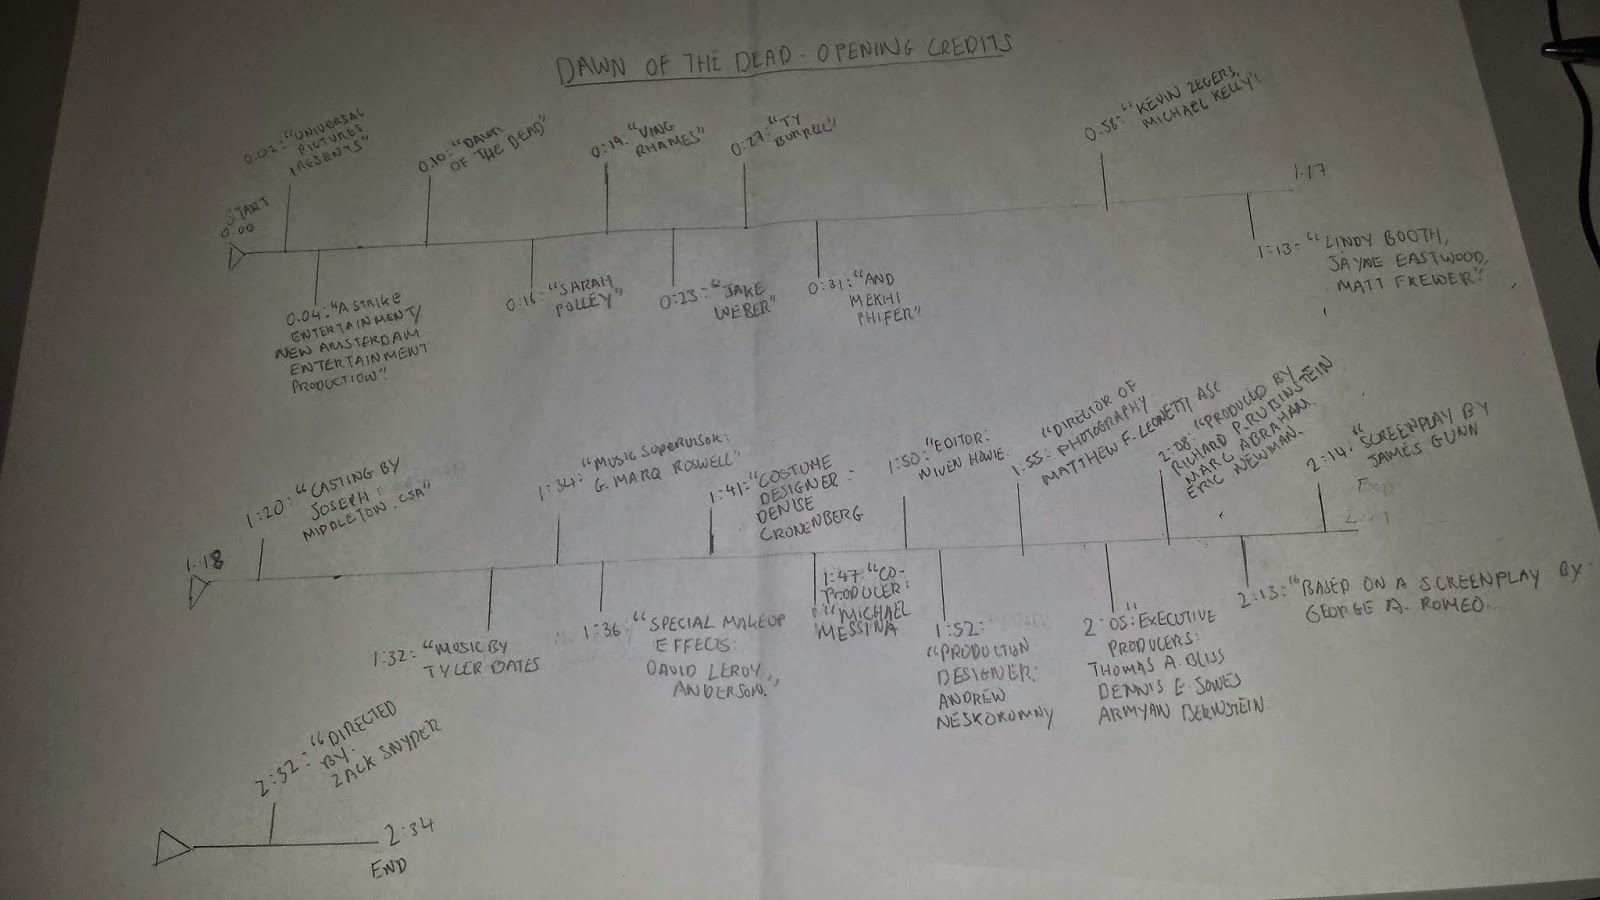 DAWN OF THE DEAD - OPENING CREDITS
START
0.00
0:02: "UNIVERSAL
PICTURES
PRESENTS"
0.04: "A STRIKE
ENTERTAINMENT/
NEW AMSTERDAM
ENTERTAINMENT
PRODUCTION".
0:10: "DAWN
OF THE DEAD"
0:16: "SARAH
POLLEY"
0:19: "VING
RHAMES"
0:23: "JAKE
WEBER"
0:27: "TY
BURRELL"
0:31: "AND
MEKHI
PHIFER"
0:58: "KEVIN ZEGERS,
MICHAEL KELLY".
1:13: "LINDY BOOTH,
JAYNE EASTWOOD,
MATT FREWER".
1.17
1.18
1:20: "CASTING BY
JOSEPH:
MIDDLETON. CSA"
1:32: "MUSIC BY
TYLER BATES
1:34: "MUSIC SUPERVISOR:
G. MARQ ROSWELL"
1:36: "SPECIAL MAKEUP
EFFECTS:
DAVID LEROY
ANDERSON."
1:41: "COSTUME
DESIGNER:
DENISE
CRONENBERG
1:47: "CO-
PRODUCER:
"MICHAEL
MESSINA
1:50: "EDITOR:
NIVEN HOWIE.
1:52:
"PRODUCTION
DESIGNER:
ANDREW
NESKOROMNY
1:55: "DIRECTOR OF
PHOTOGRAPHY
MATTHEW F. LEONETTI, ASC
2:05: "EXECUTIVE
PRODUCERS:
THOMAS A. BLISS
DENNIS E. JONES
ARMYAN BERNSTEIN
2:08: "PRODUCED BY
RICHARD P. RUBINSTEIN
MARC ABRAHAM.
ERIC NEWMAN.
2:13: "BASED ON A SCREENPLAY BY
GEORGE A. ROMEO.
2:14: "SCREENPLAY BY
JAMES GUNN
2:32: "DIRECTED
BY:
ZACK SNYDER
2:34
END